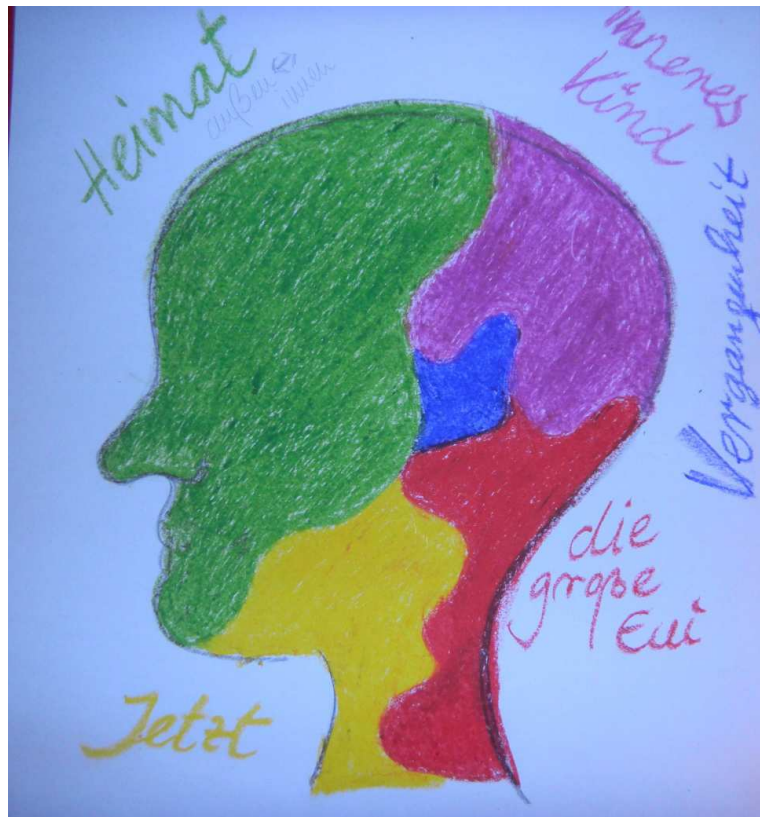 Heimat
außen ↔
innen
inneres
Kind
Vergangenheit
die
große
Eui
Jetzt